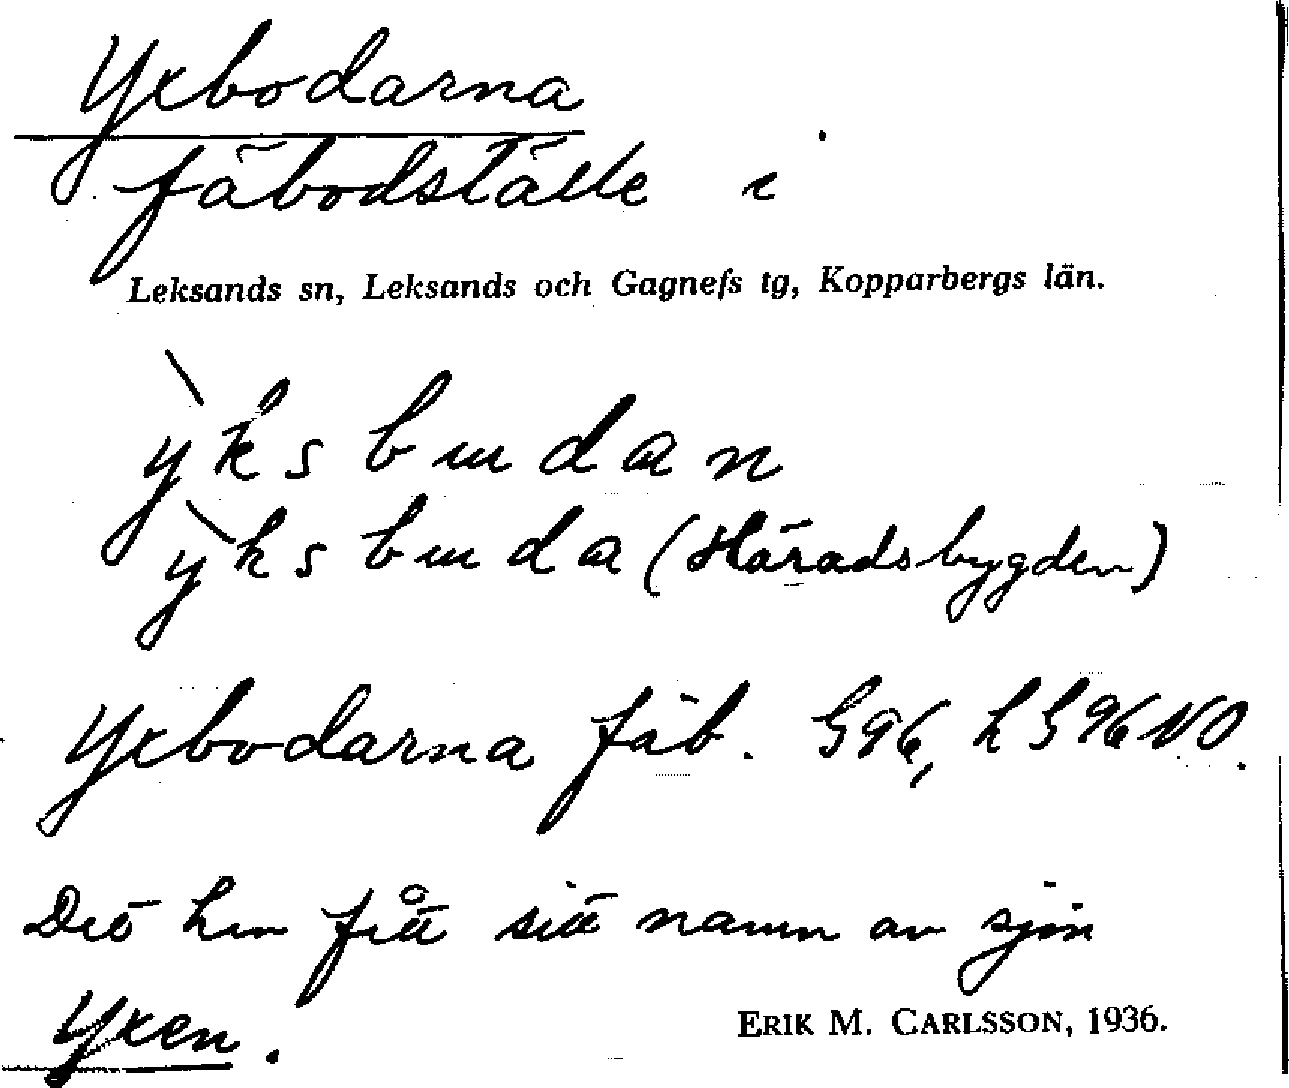 Yxbodarna
fäbodställe i
Leksands sn, Leksands och Gagnefs tg, Kopparbergs län.
ỳksbudan
ỳksbuda (Häradsbygden)
Yxbodarna fäb. G96, L G96 NO.
Det har fått sitt namn av sjön
Yxen.
ERIK M. CARLSSON, 1936.